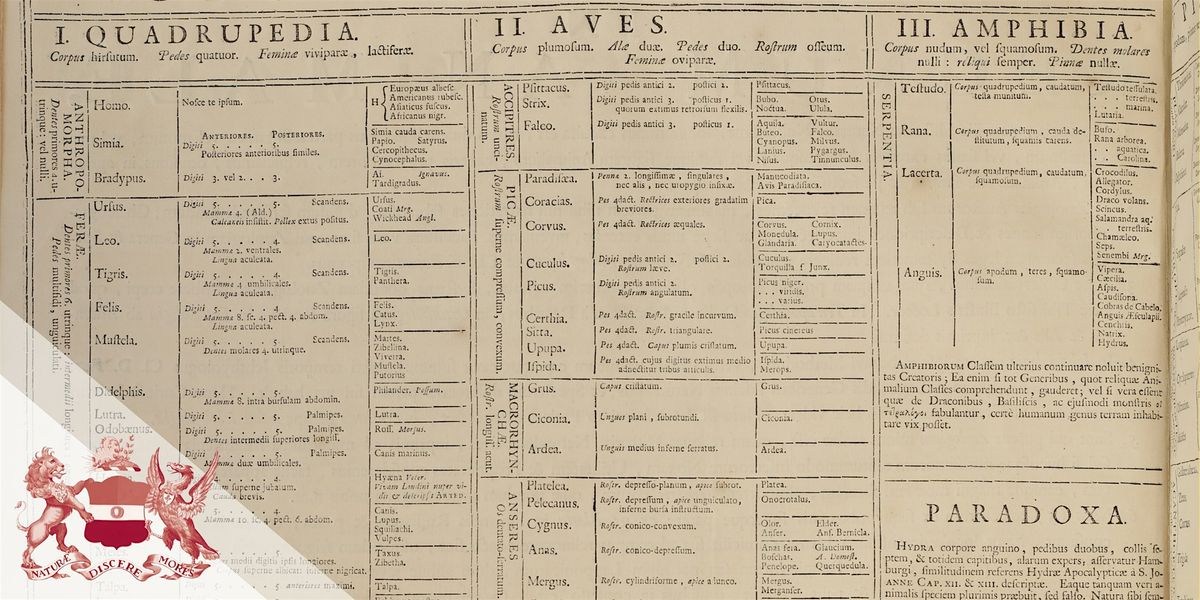 I. QUADRUPEDIA.
Corpus hirſutum. Pedes quatuor. Feminæ viviparæ, lactiferæ.
ANTHROPOMORPHA.
Dentes primores 4. utrinque: vel nulli.
Homo. Noſce te ipsum. H
Europæus albeſc.
Americanus rubeſc.
Aſiaticus fuſcus.
Africanus nigr.
Simia. ANTERIORES. POSTERIORES.
Digiti 5. . . . . . 5.
Poſteriores anterioribus ſimiles.
Simia cauda carens.
Papio. Satyrus.
Cercopithecus.
Cynocephalus.
Bradypus. Digiti 3. vel 2. . . 3.
Ai. Ignavus.
Tardigradus.
FERÆ.
Dentes primores 6. utrinque: intermedii longiores
Pedes multifidi, unguiculati.
Urſus. Digiti 5. . . . . . 5. Scandens.
Mammæ 4. (Ald.)
Calcaneis inſiſtit. Pollex extus poſitus.
Urſus.
Coati Mrg.
Wickhead Angl.
Leo. Digiti 5. . . . . . 4. Scandens.
Mammæ 2. ventrales.
Lingua aculeata.
Leo.
Tigris. Digiti 5. . . . . . 4. Scandens.
Mammæ 4 umbilicales.
Lingua aculeata.
Tigris.
Panthera.
Felis. Digiti 5. . . . . . 4. Scandens.
Mammæ 8. ſc. 4. pect. 4. abdom.
Lingua aculeata.
Felis.
Catus.
Lynx.
Muſtela. Digiti 5. . . . . . 5. Scandens.
Dentes molares 4. utrinque.
Martes.
Zibellina.
Viverra.
Muſtela.
Putorius
Didelphis. Digiti 5. . . . . . 5.
Mammæ 8. intra burſulam abdomin.
Philander. Poſſum.
Lutra. Digiti 5. . . . . . 5. Palmipes.
Lutra.
Odobænus. Digiti 5. . . . . . 5. Palmipes.
Dentes intermedii ſuperiores longiſſ.
Roſſ. Morſus.
Digiti 5. . . . . . 5. Palmipes.
Mammæ duæ umbilicales.
Canis marinus.
4.
ſuperne jubatum.
Cauda brevis.
Hyæna Veter.
Vivam Londini nuper vidit & deſcripſit ARTED.
4.
Mammæ 10. ſc. 4. pect. 6. abdom.
Canis.
Lupus.
Squillachi.
Vulpes.
5.
medii digitis ipſis longiores.
Taxus.
Zibetha.
5 anteriores maximi.
Talpa.
NATURÆ DISCERE MORES
II. AVES.
Corpus plumoſum. Alæ duæ. Pedes duo. Roſtrum oſſeum.
Feminæ oviparæ.
ACCIPITRES.
Roſtrum uncinatum.
Pſittacus. Digiti pedis antici 2. poſtici 2.
Pſittacus.
Strix. Digiti pedis antici 3. poſticus 1.
quorum extimus retrorſum flexilis.
Bubo. Otus.
Noctua. Ulula.
Falco. Digiti pedis antici 3. poſticus 1.
Aquila. Vultur.
Buteo. Falco.
Cyanopus. Milvus.
Lanius. Pygargus.
Niſus. Tinnunculus.
PICÆ.
Roſtrum ſuperne compreſſum, convexum.
Paradiſæa. Pennæ 2. longiſſimæ, ſingulares,
nec alis, nec uropygio infixæ.
Manucodiata.
Avis Paradiſiaca.
Coracias. Pes 4dact. Rectrices exteriores gradatim
breviores.
Pica.
Corvus. Pes 4dact. Rectrices æquales.
Corvus. Cornix.
Monedula. Lupus.
Glandaria. Caryocatactes.
Cuculus. Digiti pedis antici 2. poſtici 2.
Roſtrum læve.
Cuculus.
Torquilla ſ Junx.
Picus. Digiti pedis antici 2.
Roſtrum angulatum.
Picus niger.
. . . viridis.
. . . varius.
Certhia. Pes 4dact. Roſtr. gracile incurvum.
Certhia.
Sitta. Pes 4dact. Roſtr. triangulare.
Picus cinereus
Upupa. Pes 4dact. Caput plumis criſtatum.
Upupa.
Iſpida. Pes 4dact. cujus digitus extimus medio
adnectitur tribus articulis.
Iſpida.
Merops.
MACRORHYNCHÆ.
Roſtr. longiſſ. acut.
Grus. Caput criſtatum.
Grus.
Ciconia. Ungues plani, ſubrotundi.
Ciconia.
Ardea. Unguis medius inferne ſerratus.
Ardea.
ANSERES
Os dentato-ſerratum
Platelea. Roſtr. depreſſo-planum, apice ſubrot.
Platea.
Pelecanus. Roſtr. depreſſum, apice unguiculato,
inferne burſa inſtructum.
Onocrotalus.
Cygnus. Roſtr. conico-convexum.
Olor. Elder.
Anſer. Anſ. Bernicla.
Anas. Roſtr. conico-depreſſum.
Anas fera. Glaucium.
Boſchas. A. Domeſt.
Penelope. Querquedula.
Mergus. Roſtr. cylindriforme, apice a lunco.
Mergus.
Merganſer.
III. AMPHIBIA.
Corpus nudum, vel ſquamoſum. Dentes molares
nulli: reliqui ſemper. Pinnæ nullæ.
SERPENTIA.
Teſtudo. Corpus quadrupedium, caudatum,
teſta munitum.
Teſtudo teſſulata.
. . terreſtris.
. . marina.
Lutaria.
Rana. Corpus quadrupedium, cauda deſtitutum, ſquamis carens.
Bufo.
Rana arborea.
. . aquatica.
. . Carolina.
Lacerta. Corpus quadrupedium, caudatum,
ſquamoſum.
Crocodilus.
Allegator.
Cordylus.
Draco volans.
Scincus.
Salamandra aq.
. . terreſtris.
Chamæleo.
Seps.
Senembi Mrg.
Anguis. Corpus apodum, teres, ſquamoſum.
Vipera.
Cæcilia.
Aſpis.
Caudiſona.
Cobras de Cabelo.
Anguis Æſculapii.
Cenchris.
Natrix.
Hydrus.
AMPHIBIORUM Claſſem ulterius continuare noluit benignitas
Creatoris; Ea enim ſi tot Generibus, quot reliquæ Animalium
Claſſes comprehendunt, gauderet; vel ſi vera eſſent
quæ de Draconibus, Baſiliſcis, ac ejuſmodi monſtris οἱ
τερατολόγοι fabulantur, certè humanum genus terram inhabitare
vix poſſet.
PARADOXA.
HYDRA corpore anguino, pedibus duobus, collis ſeptem,
& totidem capitibus, alarum expers, aſſervatur Hamburgi,
ſimilitudinem referens Hydræ Apocalypticæ à S. JOANNE
CAP. XII. & XIII. deſcriptæ. Eaque tanquam veri animalis
ſpeciem plurimis præbuit, ſed falſo. Natura ſibi ſem-